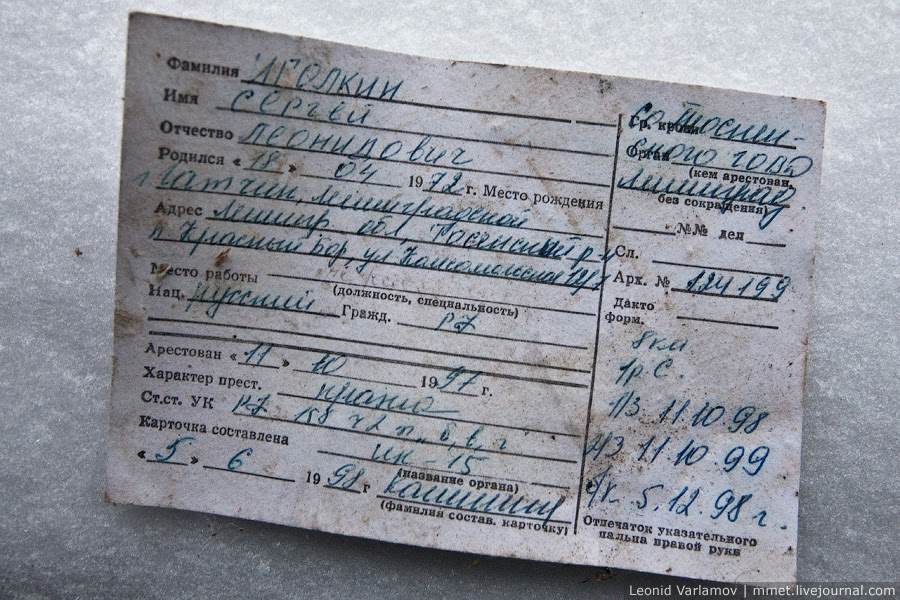 Фамилия Иголкин
Имя Сергей
Отчество Леонидович
Родился «18» 04 1972 г. Место рождения
г Гатчин, Ленинградской
Адрес Ленингр обл,
п Красный Бор, ул Комсомольская
Место работы
(должность, специальность)
Нац. русский Гражд. РФ
Арестован «11» 10 1997 г.
Характер прест. кража
Ст.ст. УК РФ
Карточка составлена ИК-15
(название органа)
«5» 6 1998 г
(фамилия состав. карточку)
Гр. крови
Орган
(кем арестован,
Ленинград
без сокращения)
№№ дел
Сл.
Арх. № 124199
Дакто
форм.
1/3 11.10.98
11.10.99
5.12.98 г.
Отпечаток указательного
пальца правой руки
Leonid Varlamov | mmet.livejournal.com